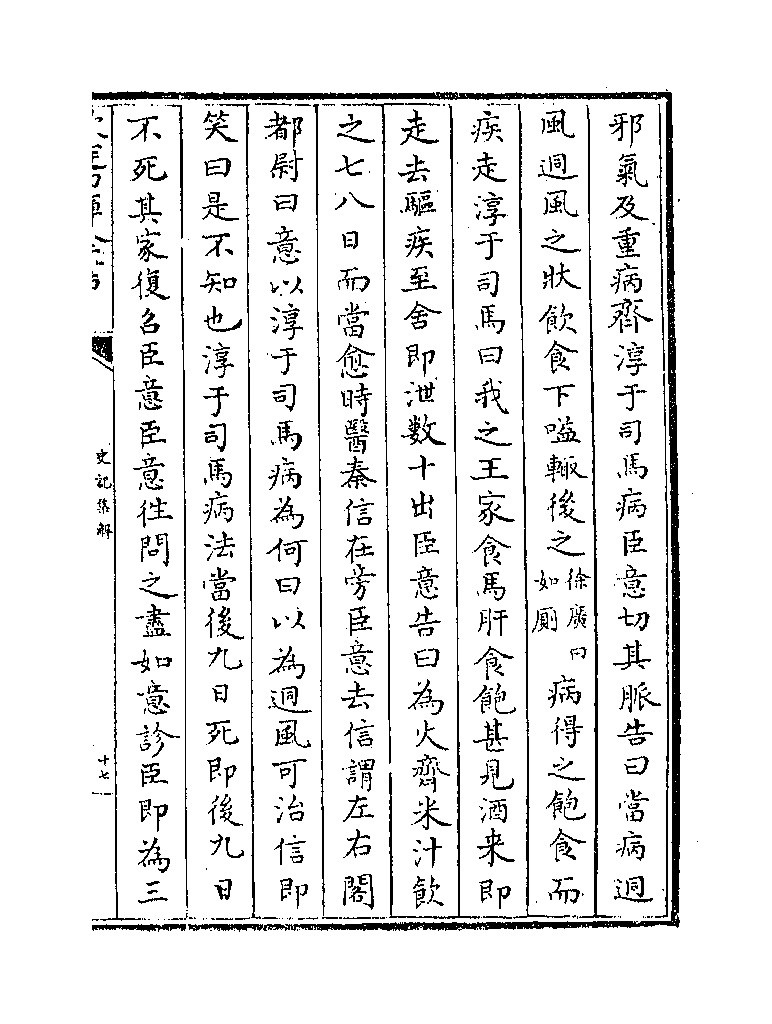 邪氣及重病齊淳于司馬病臣意切其脈告曰當病迵
風迵風之狀飲食下嗌輙後之徐廣曰如厠病得之飽食而
疾走淳于司馬曰我之王家食馬肝食飽甚見酒来即
走去驅疾至舍即泄數十出臣意告曰為火齊米汁飲
之七八日而當愈時醫秦信在旁臣意去信謂左右閣
都尉曰意以淳于司馬病為何曰以為迵風可治信即
笑曰是不知也淳于司馬病法當後九日死即後九日
不死其家復召臣意臣意徃問之盡如意診臣即為三
史記集解
十七